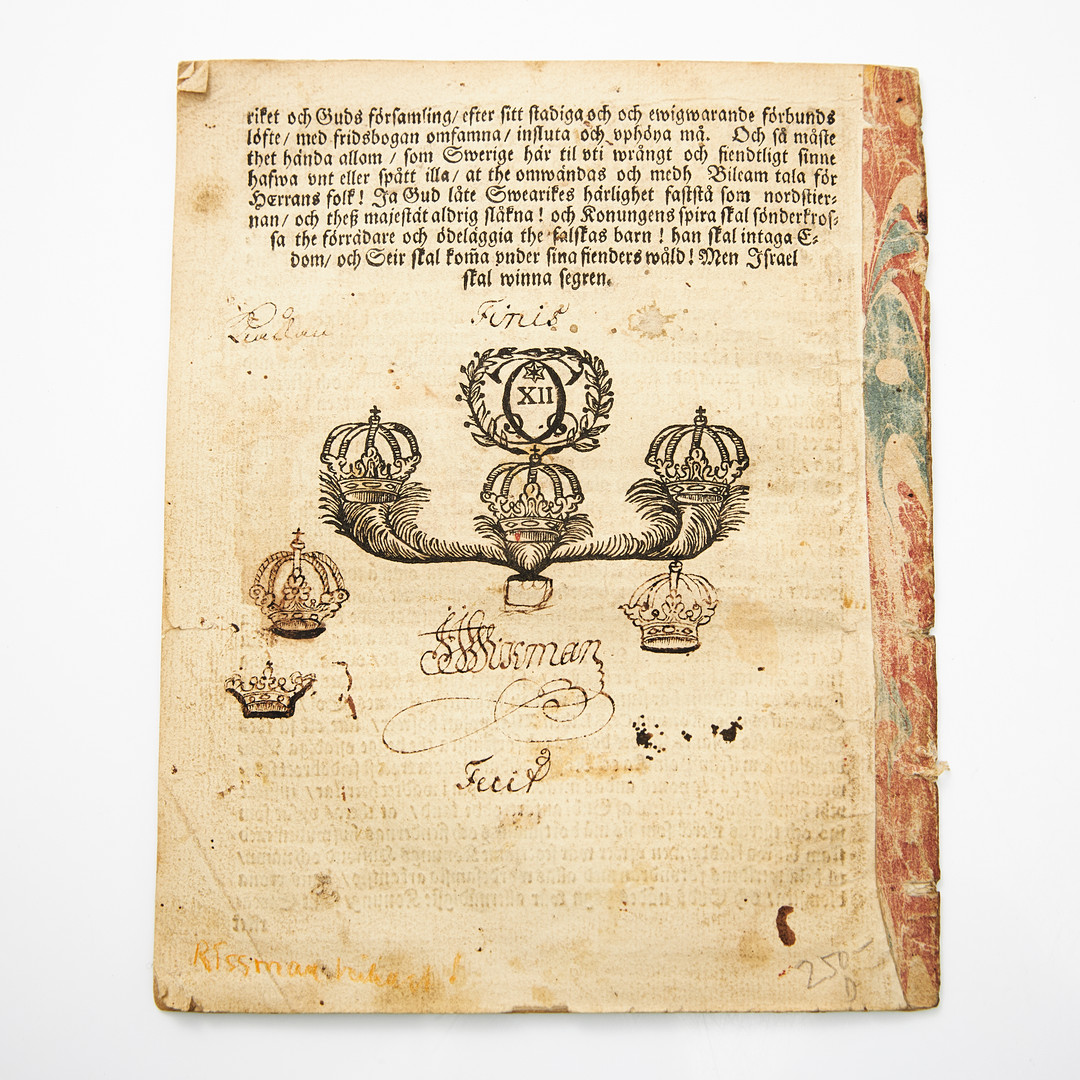 riket och Guds församling/ efter sitt stadiga och och ewigwarande förbunds
löfte/ med fridsbogan omfamna/ insluta och vphöya må. Och så måste
thet hända allom/ som Swerige här til vti wrångt och fiendtligt sinne
hafwa vnt eller spått illa/ at the omwändas och medh Bileam tala för
HErrans folk! Ja Gud låte Swearikes härlighet faststå som nordstier-
nan/ och theß majestät aldrig slåkna! och Konungens spira skal sönderkros-
sa the förrädare och ödeläggia the falskas barn! han skal intaga E-
dom/ och Seir skal koma vnder sina fienders wåld! Men Israel
skal winna segren.
Finis
XII
Wikman
Fecit
Rissman
250-
D